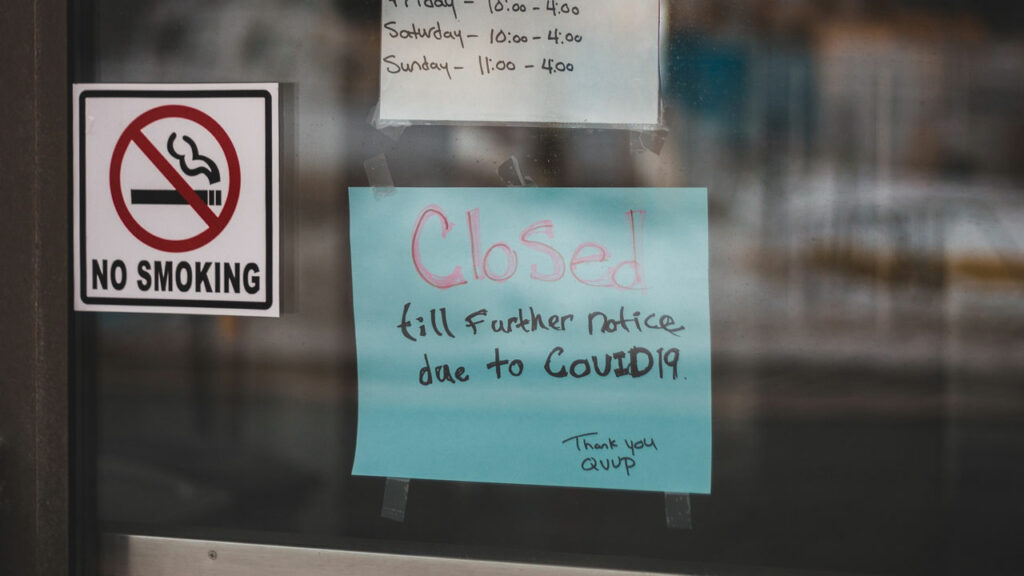 Friday - 10:00 - 4:00
Saturday - 10:00 - 4:00
Sunday - 11:00 - 4:00
NO SMOKING
Closed
till Further notice
due to COVID19.
Thank you
QVVP